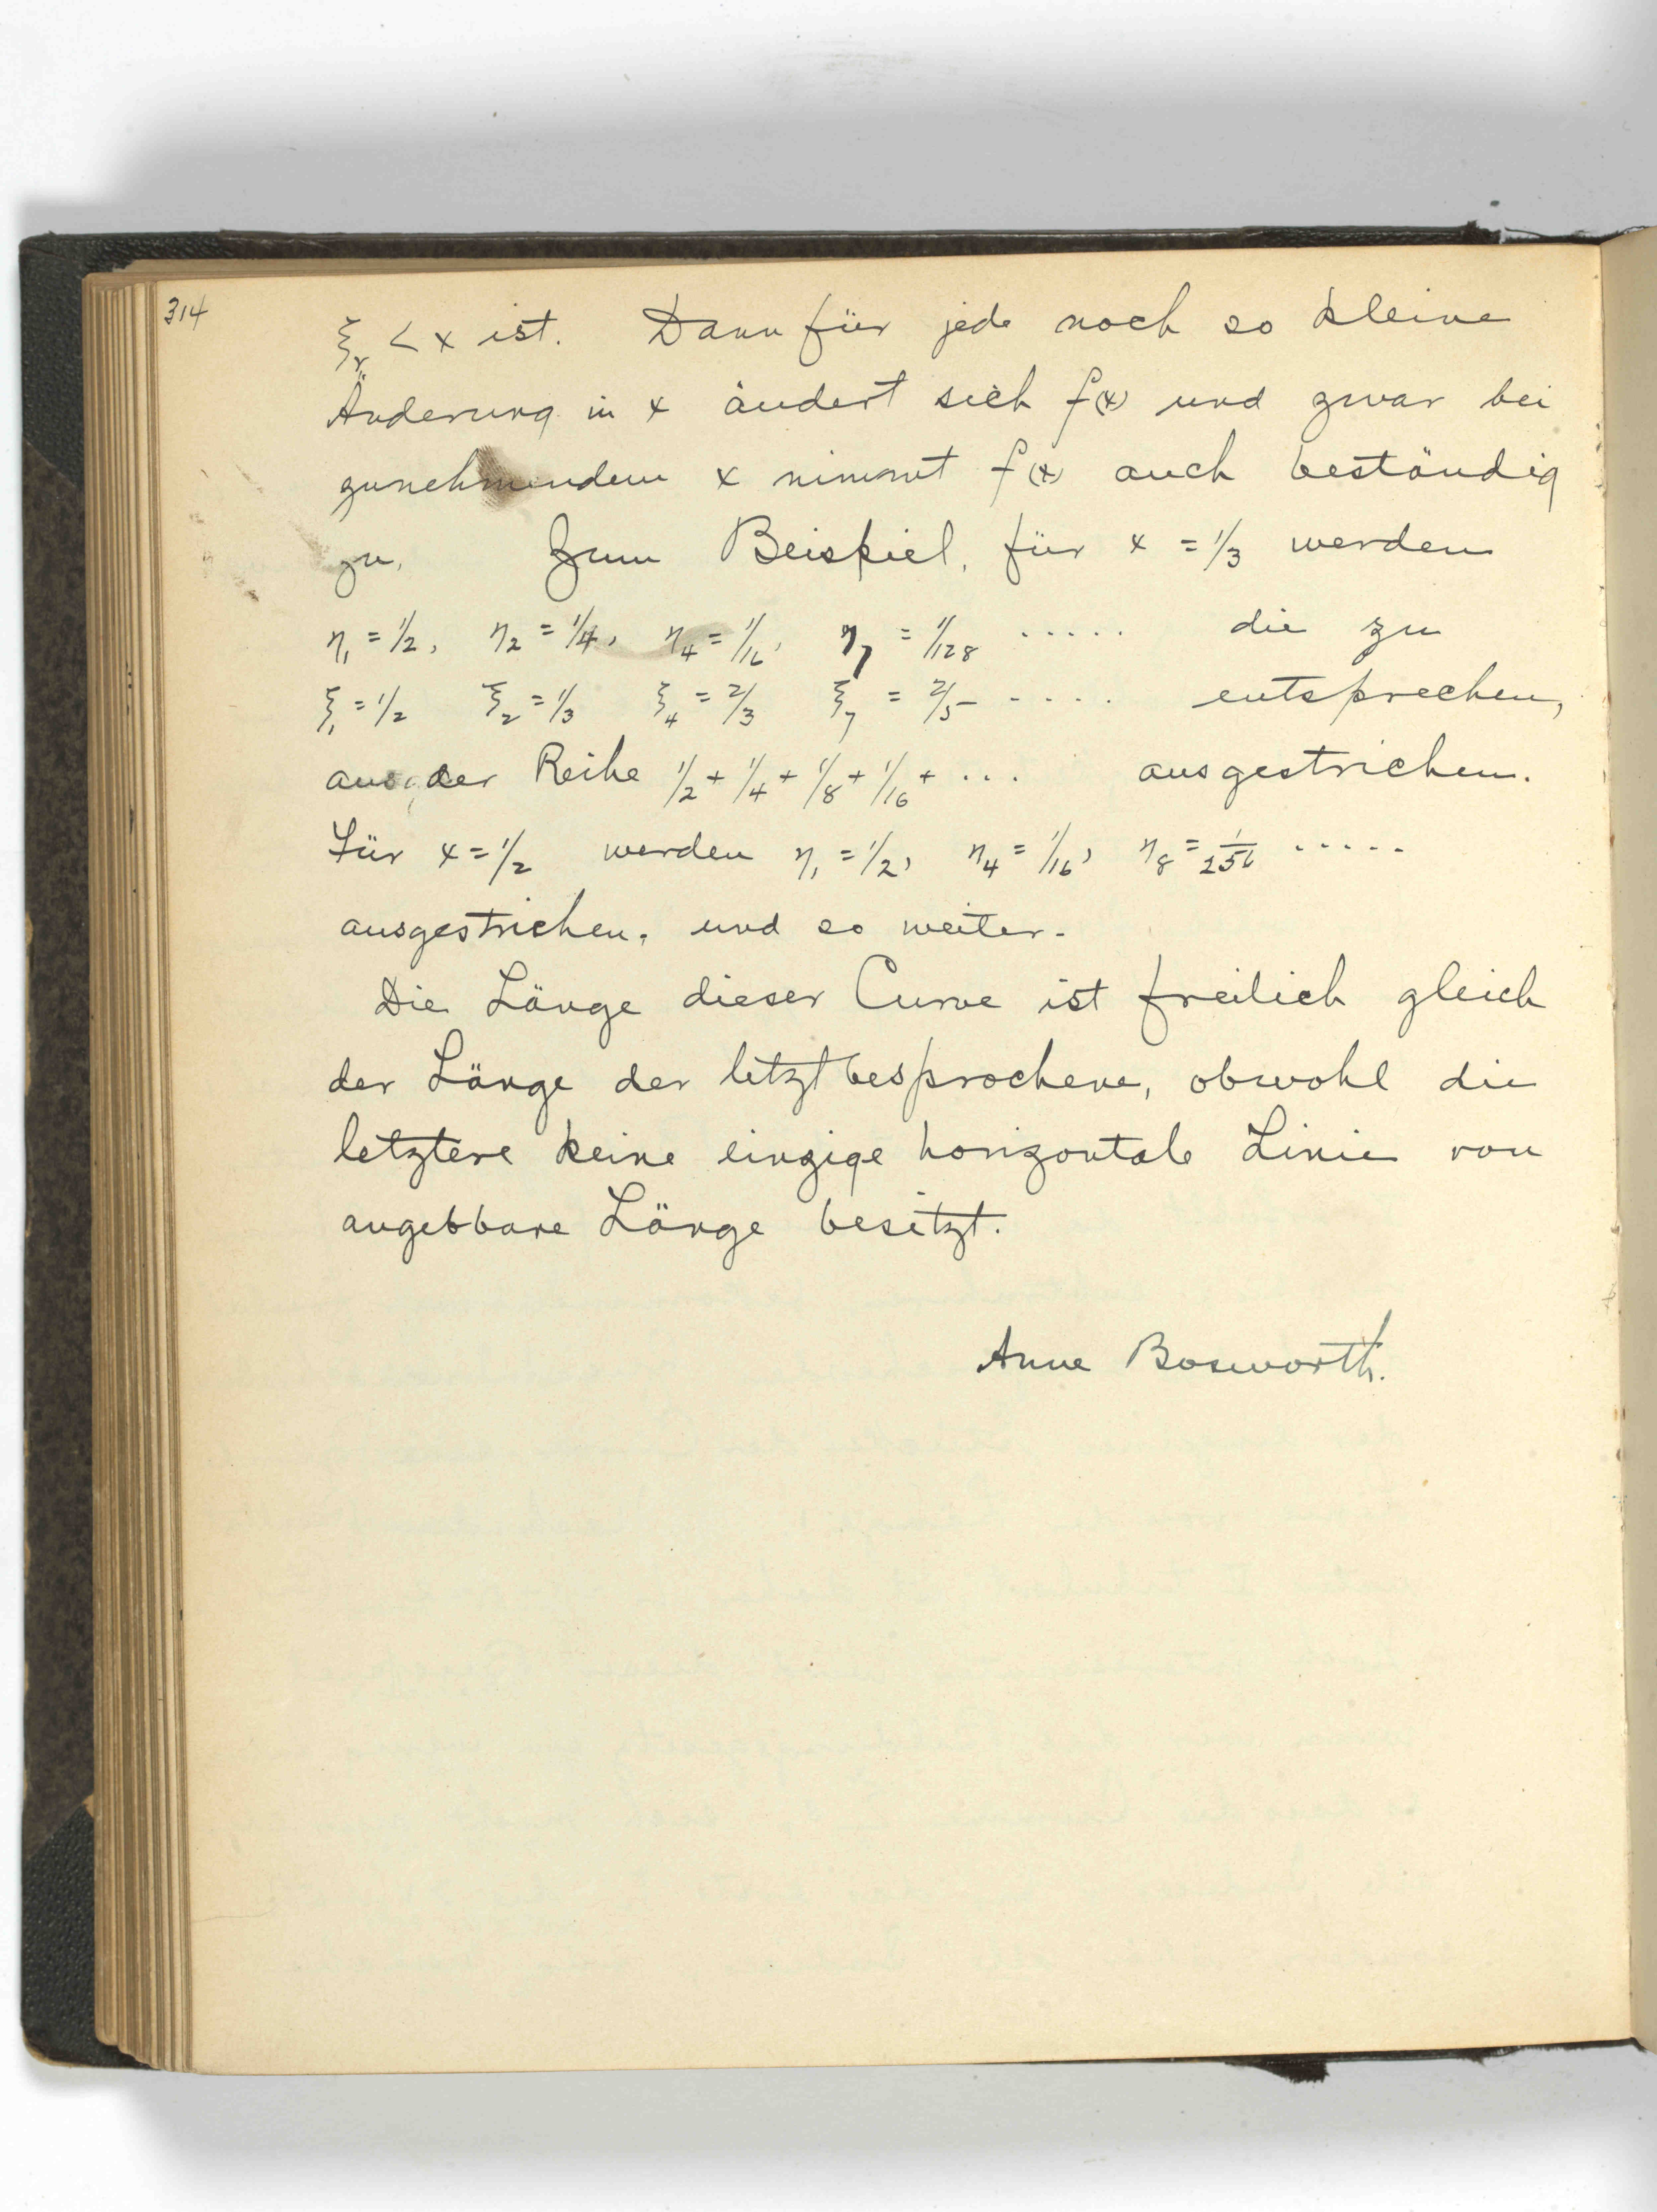 314
ξᵣ < x ist. Dann für jede noch so kleine
Änderung in x ändert sich f(x) und zwar bei
zunehmendem x nimmt f(x) auch beständig
zu. Zum Beispiel, für x = 1/3 werden
η₁ = 1/2, η₂ = 1/4, η₄ = 1/16, η₇ = 1/128 ..... die zu
ξ₁ = 1/2 ξ₂ = 1/3 ξ₄ = 2/3 ξ₇ = 2/5 ..... entsprechen,
aus der Reihe 1/2 + 1/4 + 1/8 + 1/16 + ... ausgestrichen.
Für x = 1/2 werden η₁ = 1/2, η₄ = 1/16, η₈ = 1/256 .....
ausgestrichen, und so weiter.
Die Länge dieser Curve ist freilich gleich
der Länge der letztbesprochene, obwohl die
letztere keine einzige horizontale Linie von
angebbare Länge besitzt.
Anne Bosworth.